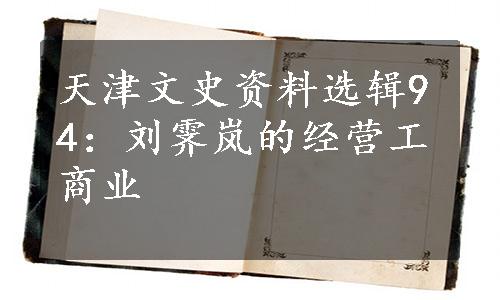 天津文史资料选辑9
4：刘霁岚的经营工
商业